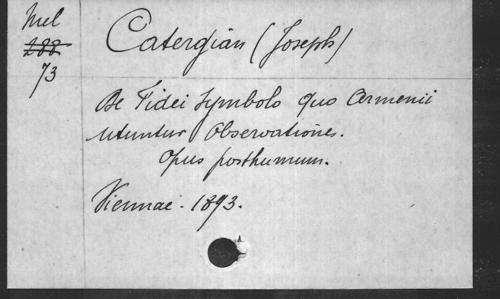 Mel
288
73
Catergian (Joseph)
De Fidei Symbolo quo Armenii
utuntur Observationes.
Opus posthumum.
Viennae. 1893.